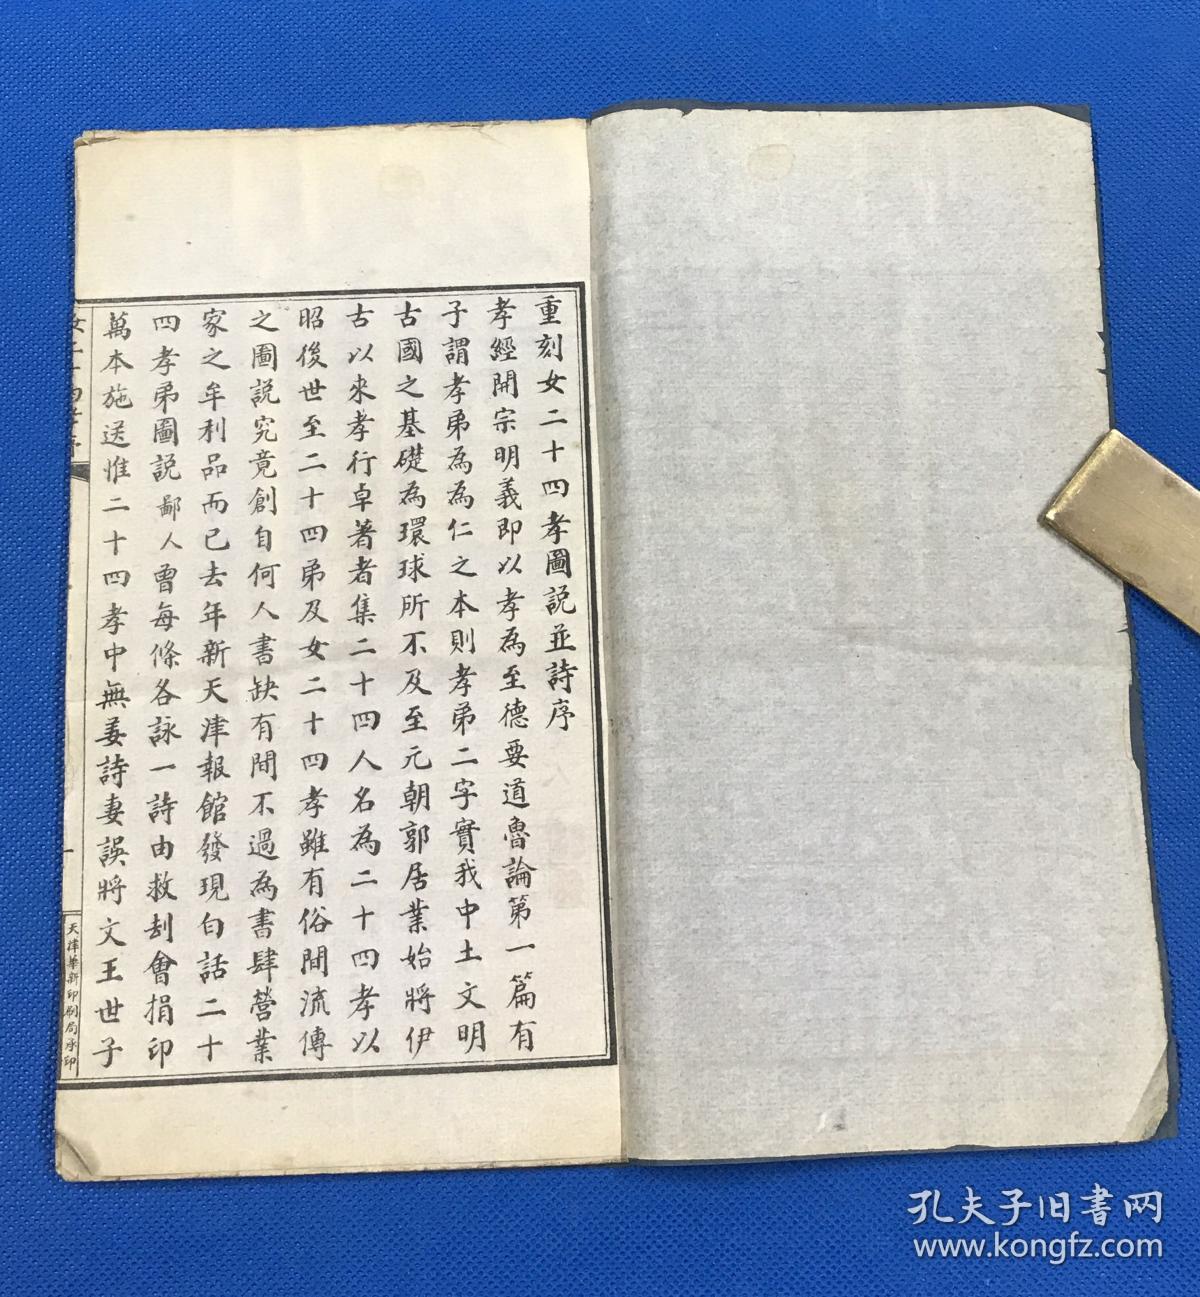 重刻女二十四孝圖説並詩序
孝經開宗明義即以孝為至德要道魯論第一篇有
子謂孝弟為為仁之本則孝弟二字實我中土文明
古國之基礎為環球所不及至元朝郭居業始將伊
古以來孝行卓著者集二十四人名為二十四孝以
昭後世至二十四弟及女二十四孝雖有俗間流傳
之圖説究竟創自何人書缺有間不過為書肆營業
家之牟利品而已去年新天津報館發現白話二十
四孝弟圖説鄙人曾每條各詠一詩由救刦會捐印
萬本施送惟二十四孝中無姜詩妻誤將文王世子
天津華新印刷局承印
孔夫子旧书网
www.kongfz.com